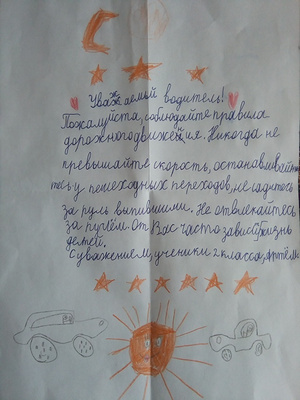 Уважаемый водитель!
Пожалуйста, соблюдайте правила
дорожного движения. Никогда не
превышайте скорость, останавливай
тесь у пешеходных переходов, не садитесь
за руль выпившими. Не отвлекайтесь
за рулём. От Вас часто зависит жизнь
детей.
С уважением, ученики 2 класса, Артём